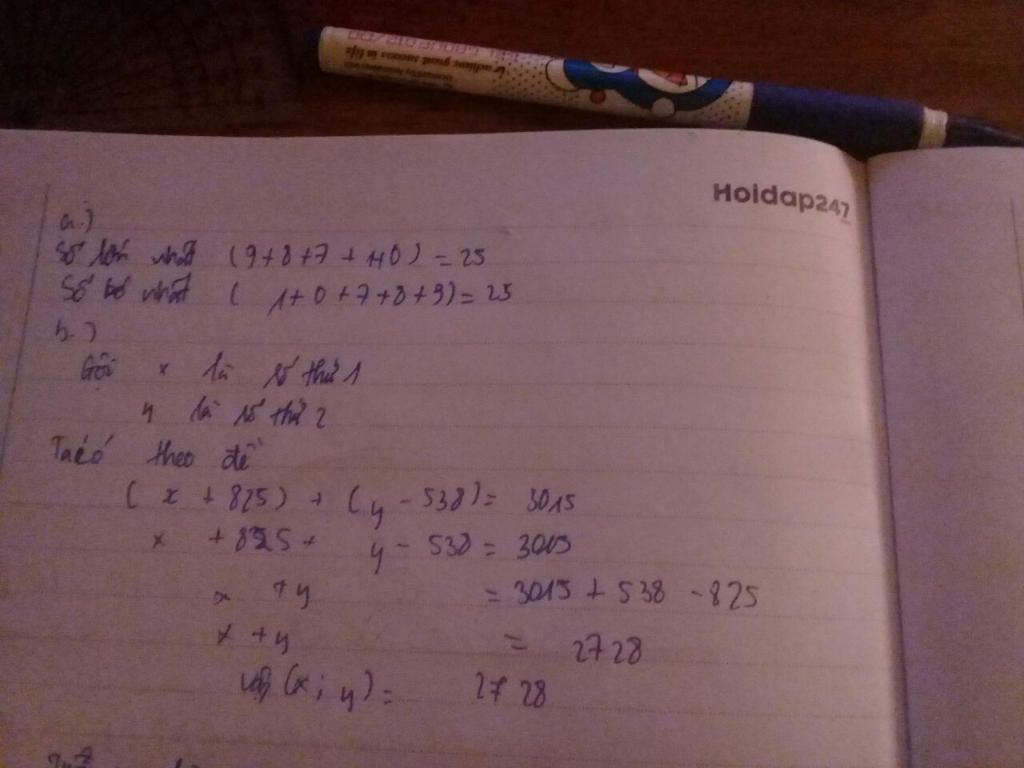 achieve great success in life
Hoidap247
a.)
Số lớn nhất (9+8+7+1+0) = 25
Số bé nhất (1+0+7+8+9) = 25
b.)
Gọi x là số thứ 1
y là số thứ 2
Ta có theo đề
(x + 825) + (y - 538) = 3015
x + 825 + y - 538 = 3015
x + y = 3015 + 538 - 825
x + y = 2728
Vậy (x; y) = 2728